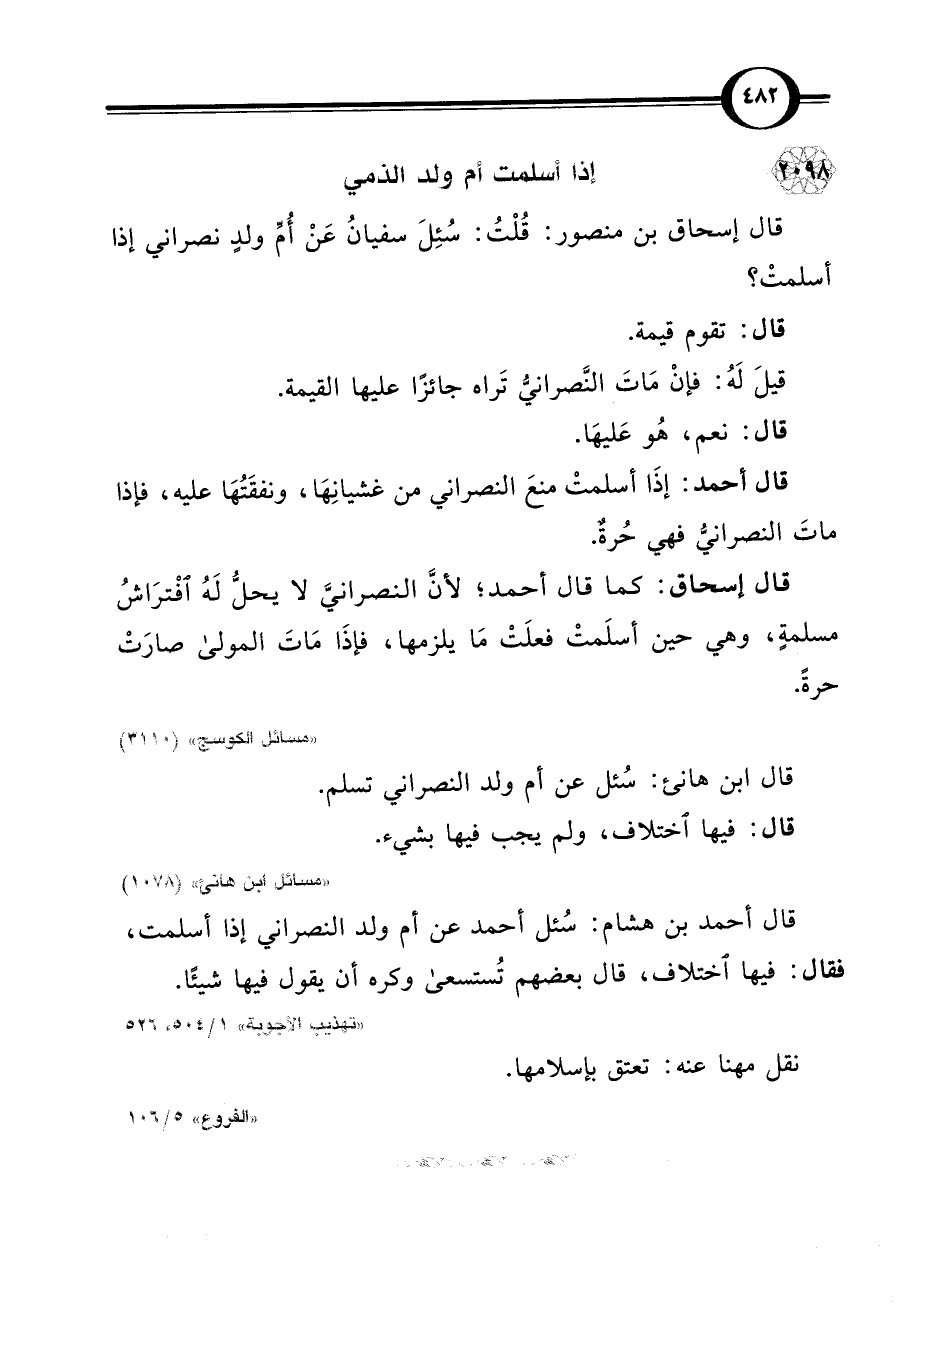 ٤٨٢
٢٠٩٨ إذا أسلمت أم ولد الذمي
قال إسحاق بن منصور: قُلْتُ: سُئِلَ سفيانُ عَنْ أُمِّ ولدٍ نصراني إذا
أسلمتْ؟
قال: تقوم قيمة.
قيلَ لَهُ: فإنْ مَاتَ النَّصرانيُّ تَراه جائزًا عليها القيمة.
قال: نعم، هُو عَليهَا.
قال أحمد: إذَا أسلمتْ منعَ النصراني من غشيانِهَا، ونفقَتُهَا عليه، فإذا
ماتَ النصرانيُّ فهي حُرةٌ.
قال إسحاق: كما قال أحمد؛ لأنَّ النصرانيَّ لا يحلُّ لَهُ ٱفْتراشُ
مسلمةٍ، وهي حين أسلَمتْ فعلَتْ مَا يلزمها، فإذَا مَاتَ المولىٰ صارَتْ
حرةً.
«مسائل الكوسج» (٣١١٠)
قال ابن هانئ: سُئل عن أم ولد النصراني تسلم.
قال: فيها ٱختلاف، ولم يجب فيها بشيء.
«مسائل ابن هانئ» (١٠٧٨)
قال أحمد بن هشام: سُئل أحمد عن أم ولد النصراني إذا أسلمت،
فقال: فيها ٱختلاف، قال بعضهم تُستسعىٰ وكره أن يقول فيها شيئًا.
«تهذيب الأجوبة» ١/٥٠٤، ٥٢٦
نقل مهنا عنه: تعتق بإسلامها.
«الفروع» ٥/١٠٦